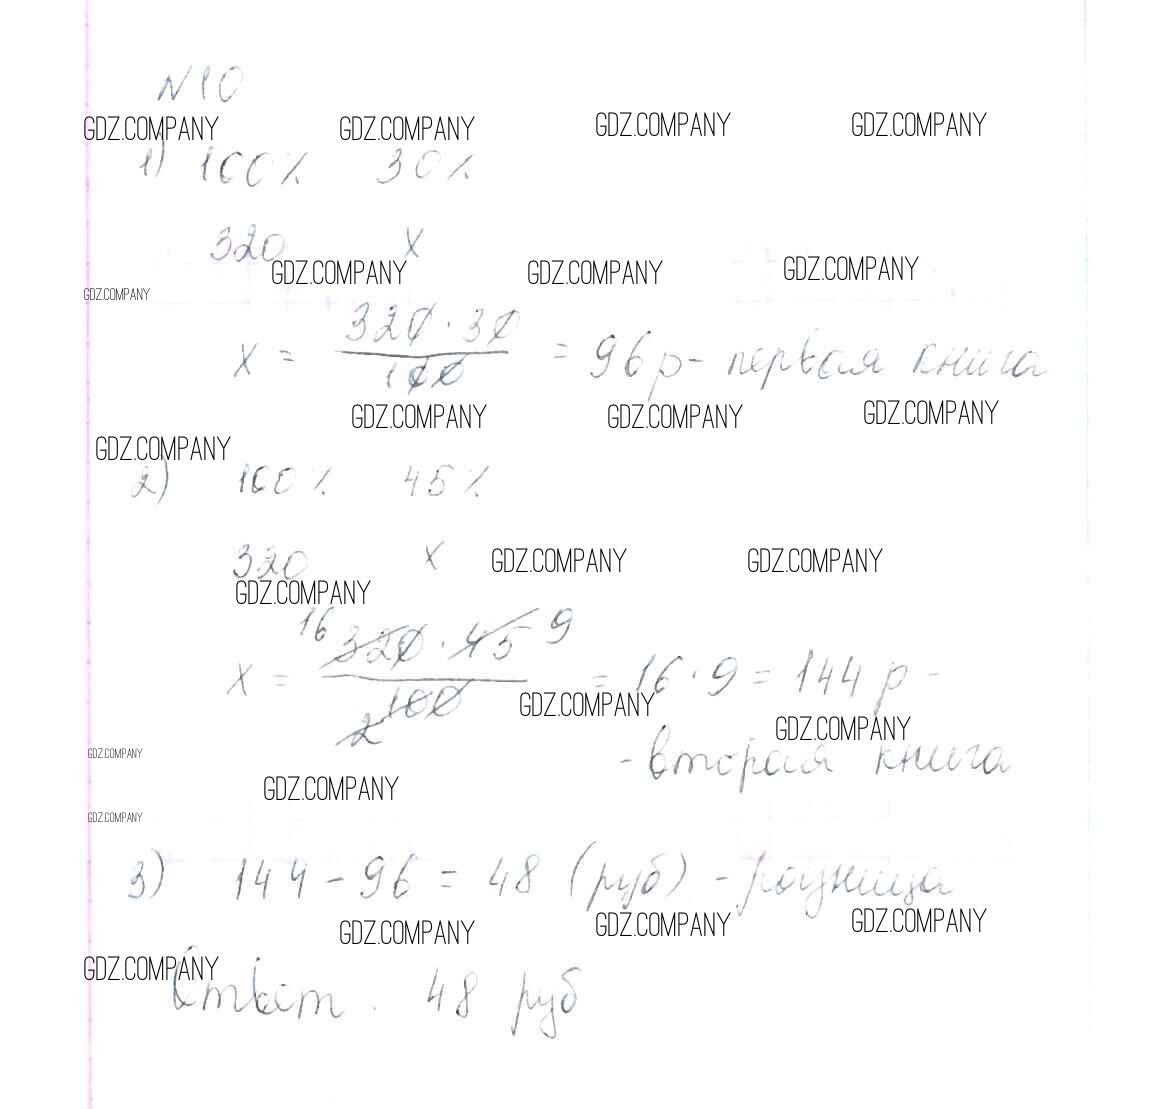 N10
GDZ.COMPANY GDZ.COMPANY GDZ.COMPANY GDZ.COMPANY
1) 100% 30%
320 x
GDZ.COMPANY GDZ.COMPANY GDZ.COMPANY
GDZ.COMPANY
x = 320 · 30 / 100 = 96 р - первая книга
GDZ.COMPANY GDZ.COMPANY GDZ.COMPANY
GDZ.COMPANY
2) 100% 45%
320 x GDZ.COMPANY GDZ.COMPANY
GDZ.COMPANY
x = 16 320 · 45 9 / 2 100 = 16 · 9 = 144 р -
GDZ.COMPANY GDZ.COMPANY
- вторая книга
GDZ.COMPANY
GDZ.COMPANY
GDZ.COMPANY
3) 144 - 96 = 48 (руб) - разница
GDZ.COMPANY GDZ.COMPANY GDZ.COMPANY
GDZ.COMPANY
Ответ. 48 руб